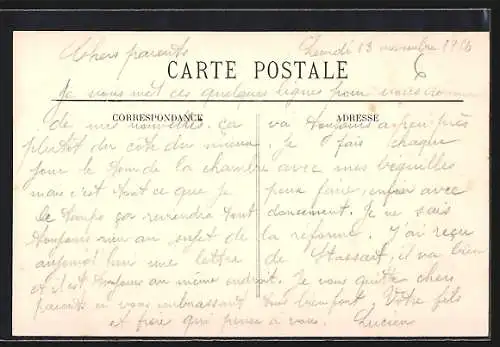 Chers parents Lundi 13 novembre 1916
CARTE POSTALE
6
Je vous met ces quelques lignes pour vous donner
CORRESPONDANCE ADRESSE
de mes nouvelles. ça va toujours a peu près
plutot du coté du mieux. Je fais chaque
jour le tour de la chambre avec mes béquilles
mais c'est tout ce que je peux faire, enfin avec
le temps ça reviendra tout doucement. Je ne sais
toujours rien au sujet de la reforme. J'ai reçu
aujourd'hui une lettre de il va bien
et il est toujours au même endroit. Je vous quitte chers
parents en vous embrassant tous bien fort. Votre fils
et frère qui pense a vous. Lucien